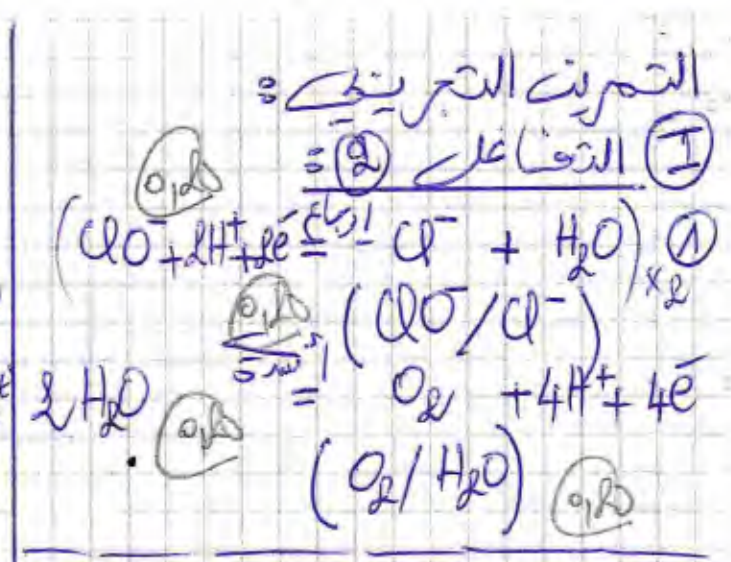 التمرين التجريبي :
I التفاعل 2 :
0,20
(ClO⁻ + 2H⁺ + 2e⁻ =إرجاع= Cl⁻ + H₂O) ×2 ①
0,20 (ClO⁻/Cl⁻)
2H₂O =أكسدة= O₂ + 4H⁺ + 4e⁻
0,20 (O₂/H₂O) 0,20